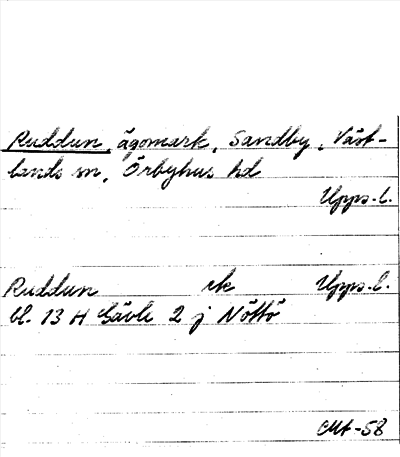 Ruddun, ägomark, Sandby, Väst-
lands sn, Örbyhus hd
Upps. l.
Ruddun ek Upps. l.
bl. 13 H Gävle 2 j Nöttö
-58